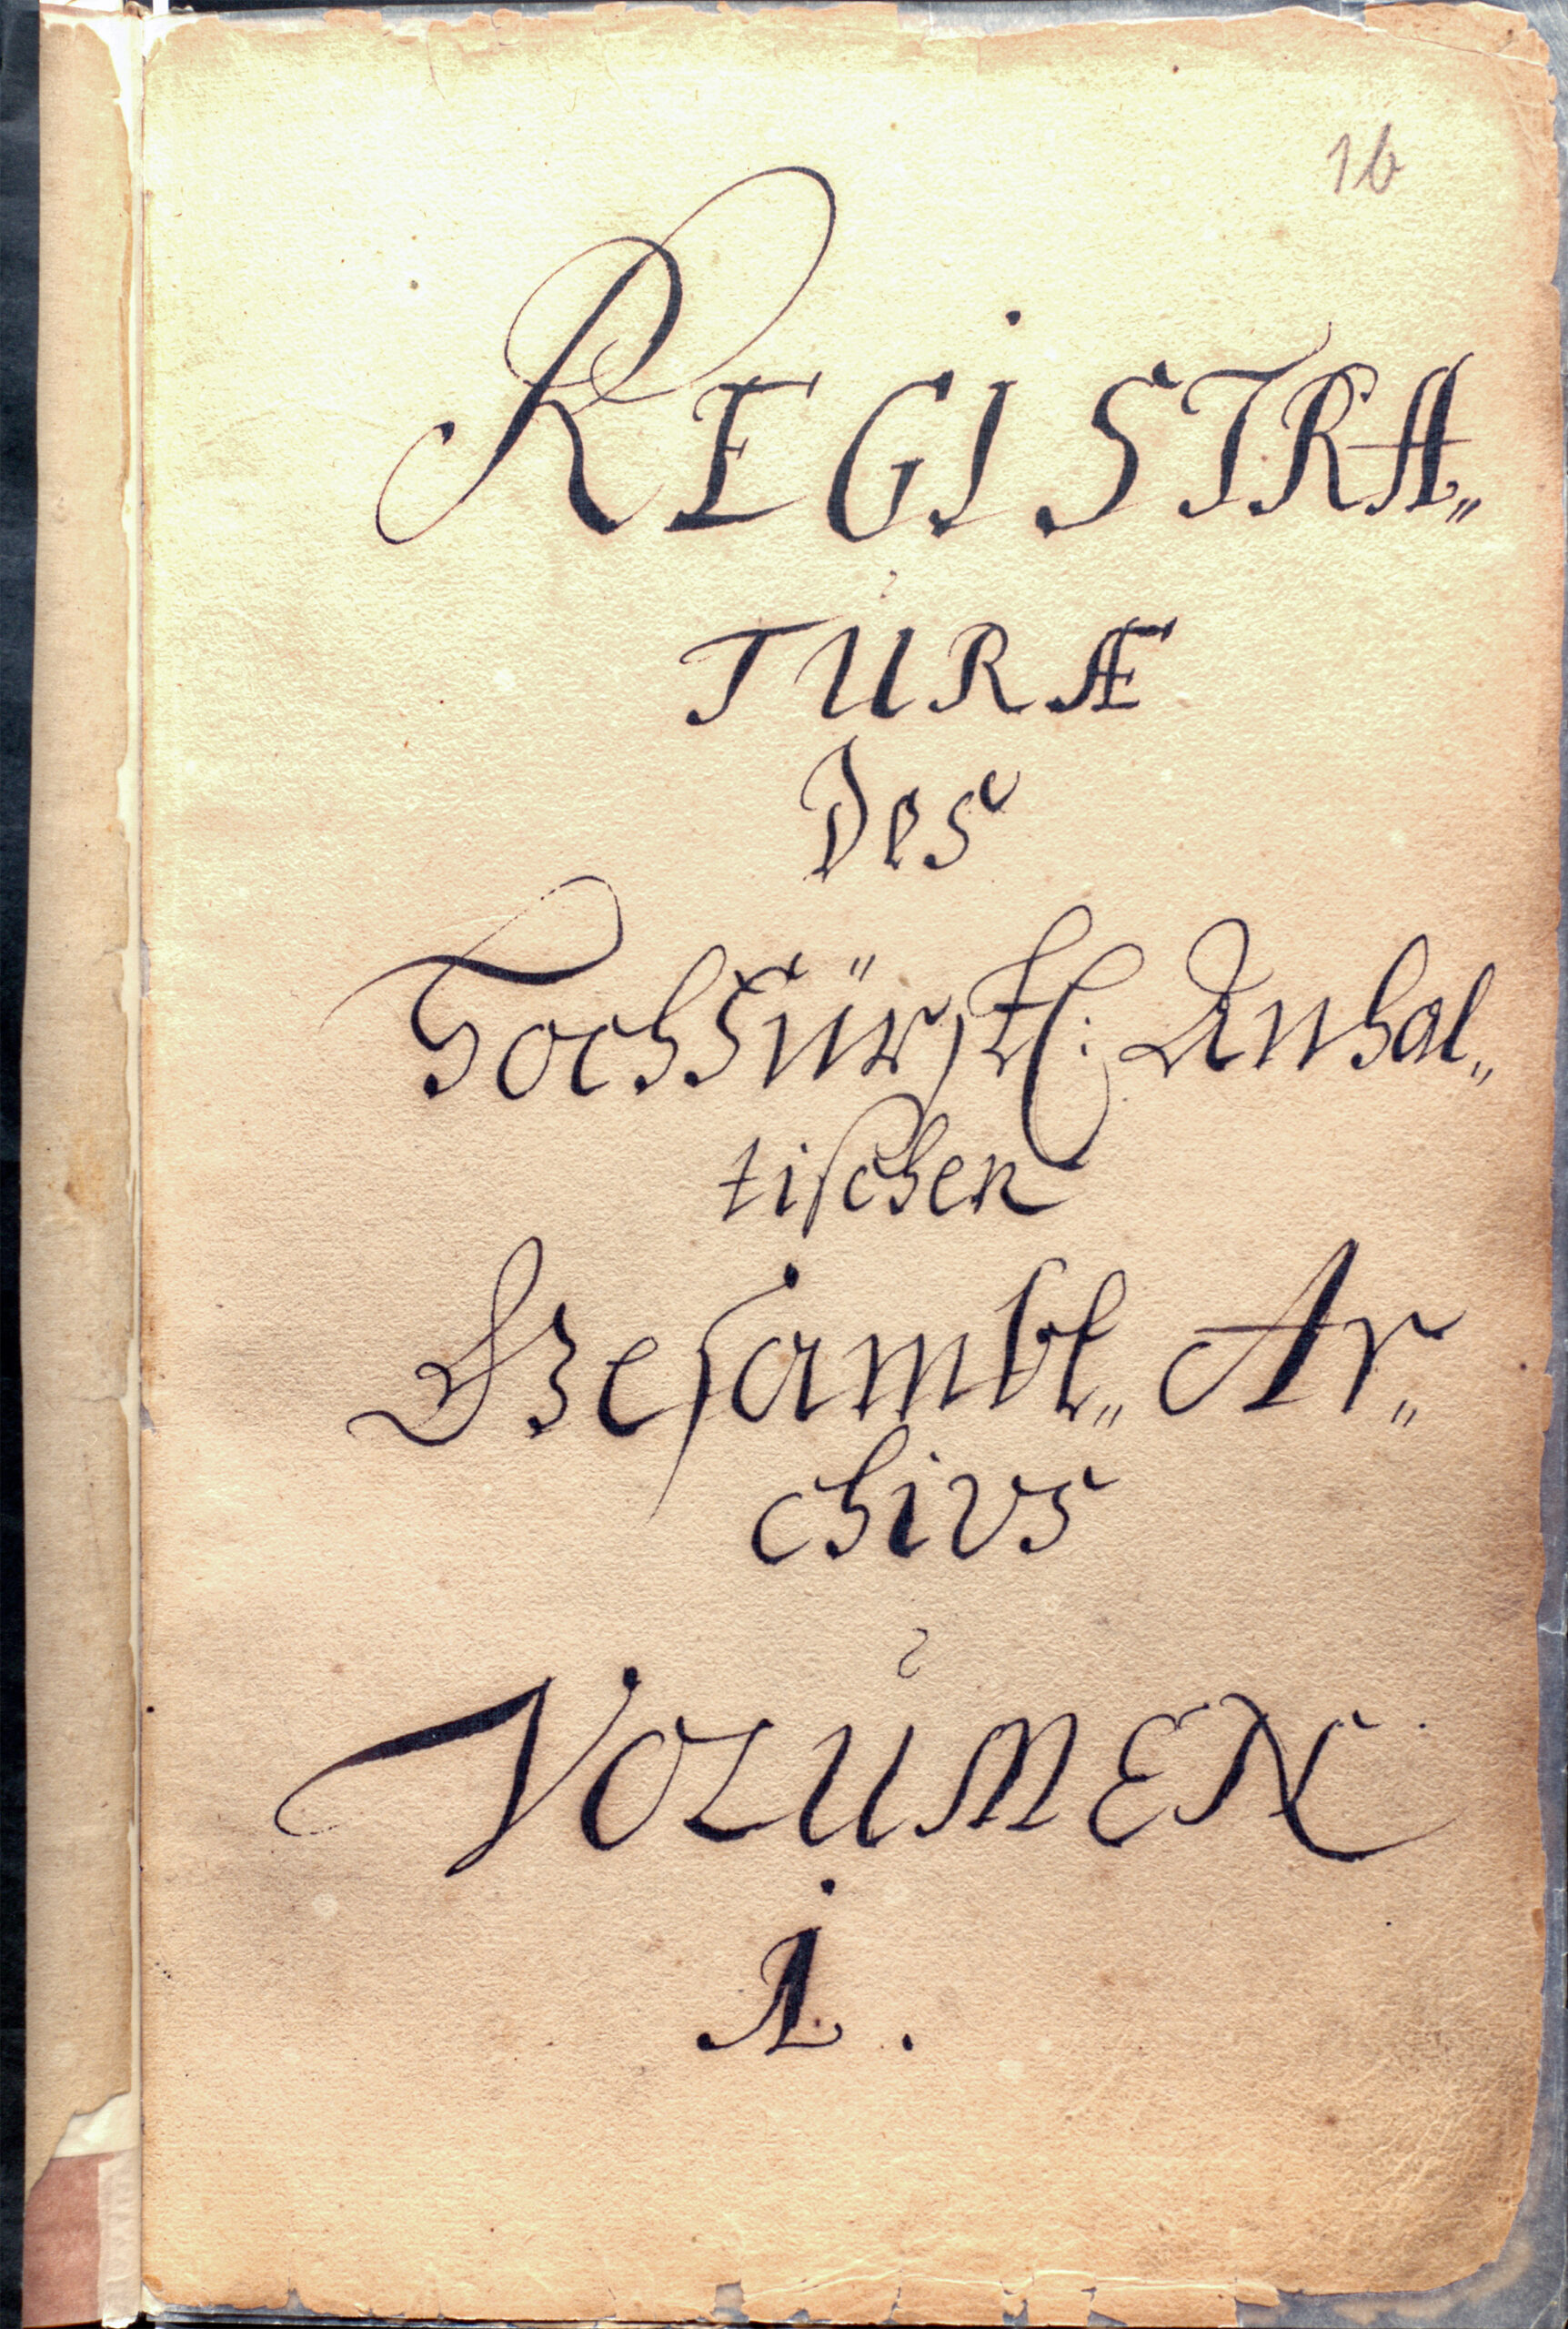 16
REGISTRA„
TURÆ
Des
Hochfürstl: Anhal„
tischen
Gesambt„ Ar„
chivs
VOLUMEN
I.